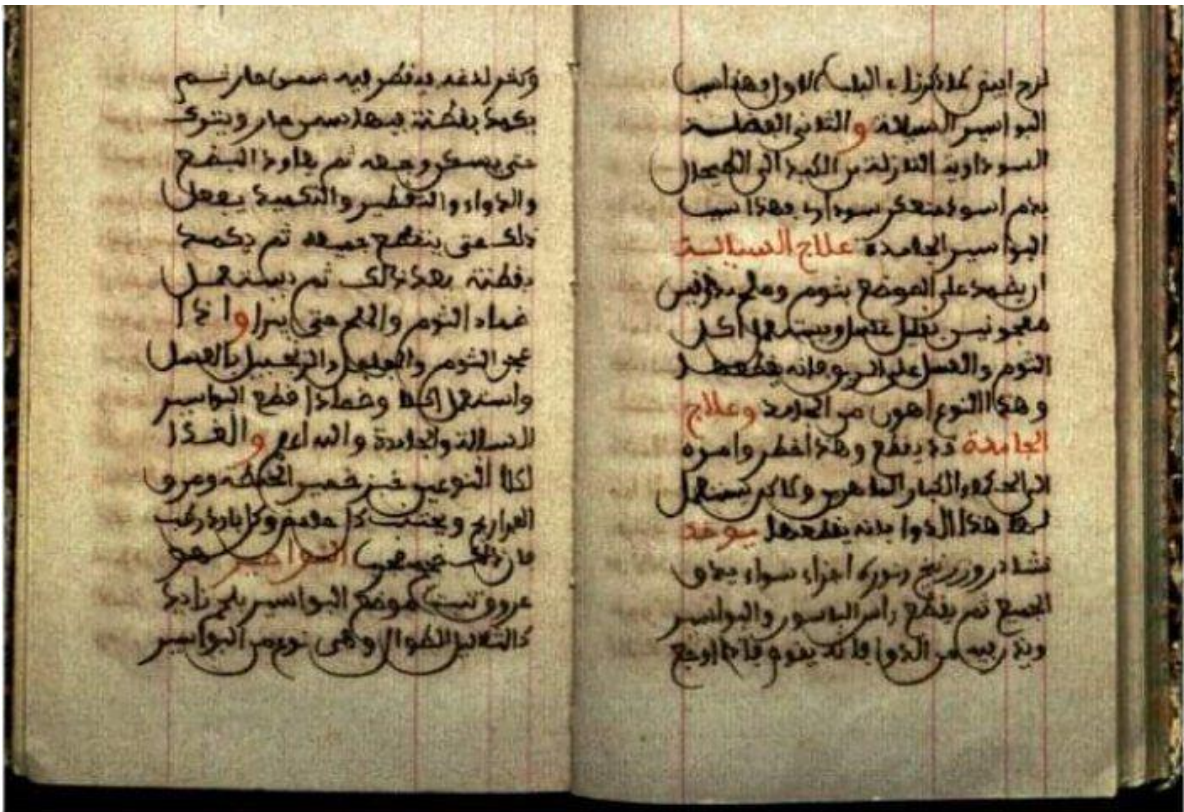 لزج ابيض الاول وهذا سبب
البواسير السيالة و الثاني الفضلة
السوداوية النازلة من الكبد الى الطيحال
بدم أسود متعكر سوداوي فهذا سبب
البواسير الجامدة علاج السيالة
ان يضمد على الموضع بثوم وملح
معجونين بقليل عسل ويستعمل اكل
الثوم والعسل على الريق فانه يقطعها
وهذا النوع اهون من الجامد وعلاج
الجامدة قد يقطع وهذا اخطر وامره
الى الحكماء الكبار الماهرين تستعمل
لها هذا الدوا بانه يقطعها يوخذ
نشادر وزرنيخ ونورة أجزاء سواء يدق
الجميع ثم يقطع رأس الباسور والبواسر
ويذر فيه من الدوا فانه فاذا اوجع
وكثر لذغه يقطر فيه سمن حار ثم
يكمد بقطنة فيها سمن حار ويترك
حتى يسكن وجعه ثم يعاود البضع
والدواء والتقطير والتكميد يفعل
ذلك حتى ينقطع جميعه ثم يكمد
بقطنة بعد ذلك ثم يستعمل
ضماد الثوم والملح حتى يبرا واذا
عجن الثوم والفلفل والزنجبيل بالعسل
واستعمل اكلا وضمادا قطع البواسير
السيالة والجامدة والله اعلم والغذا
لكلا النوعين خبز خمير الحنطة ومرق
الفراريج ويجتنب كل وكل بارد رطب
فان ذلك البواسير هو
عروق تنبت موضع البواسير بلحم زايد
كالثاليل الطوال وهى نوع من البواسير